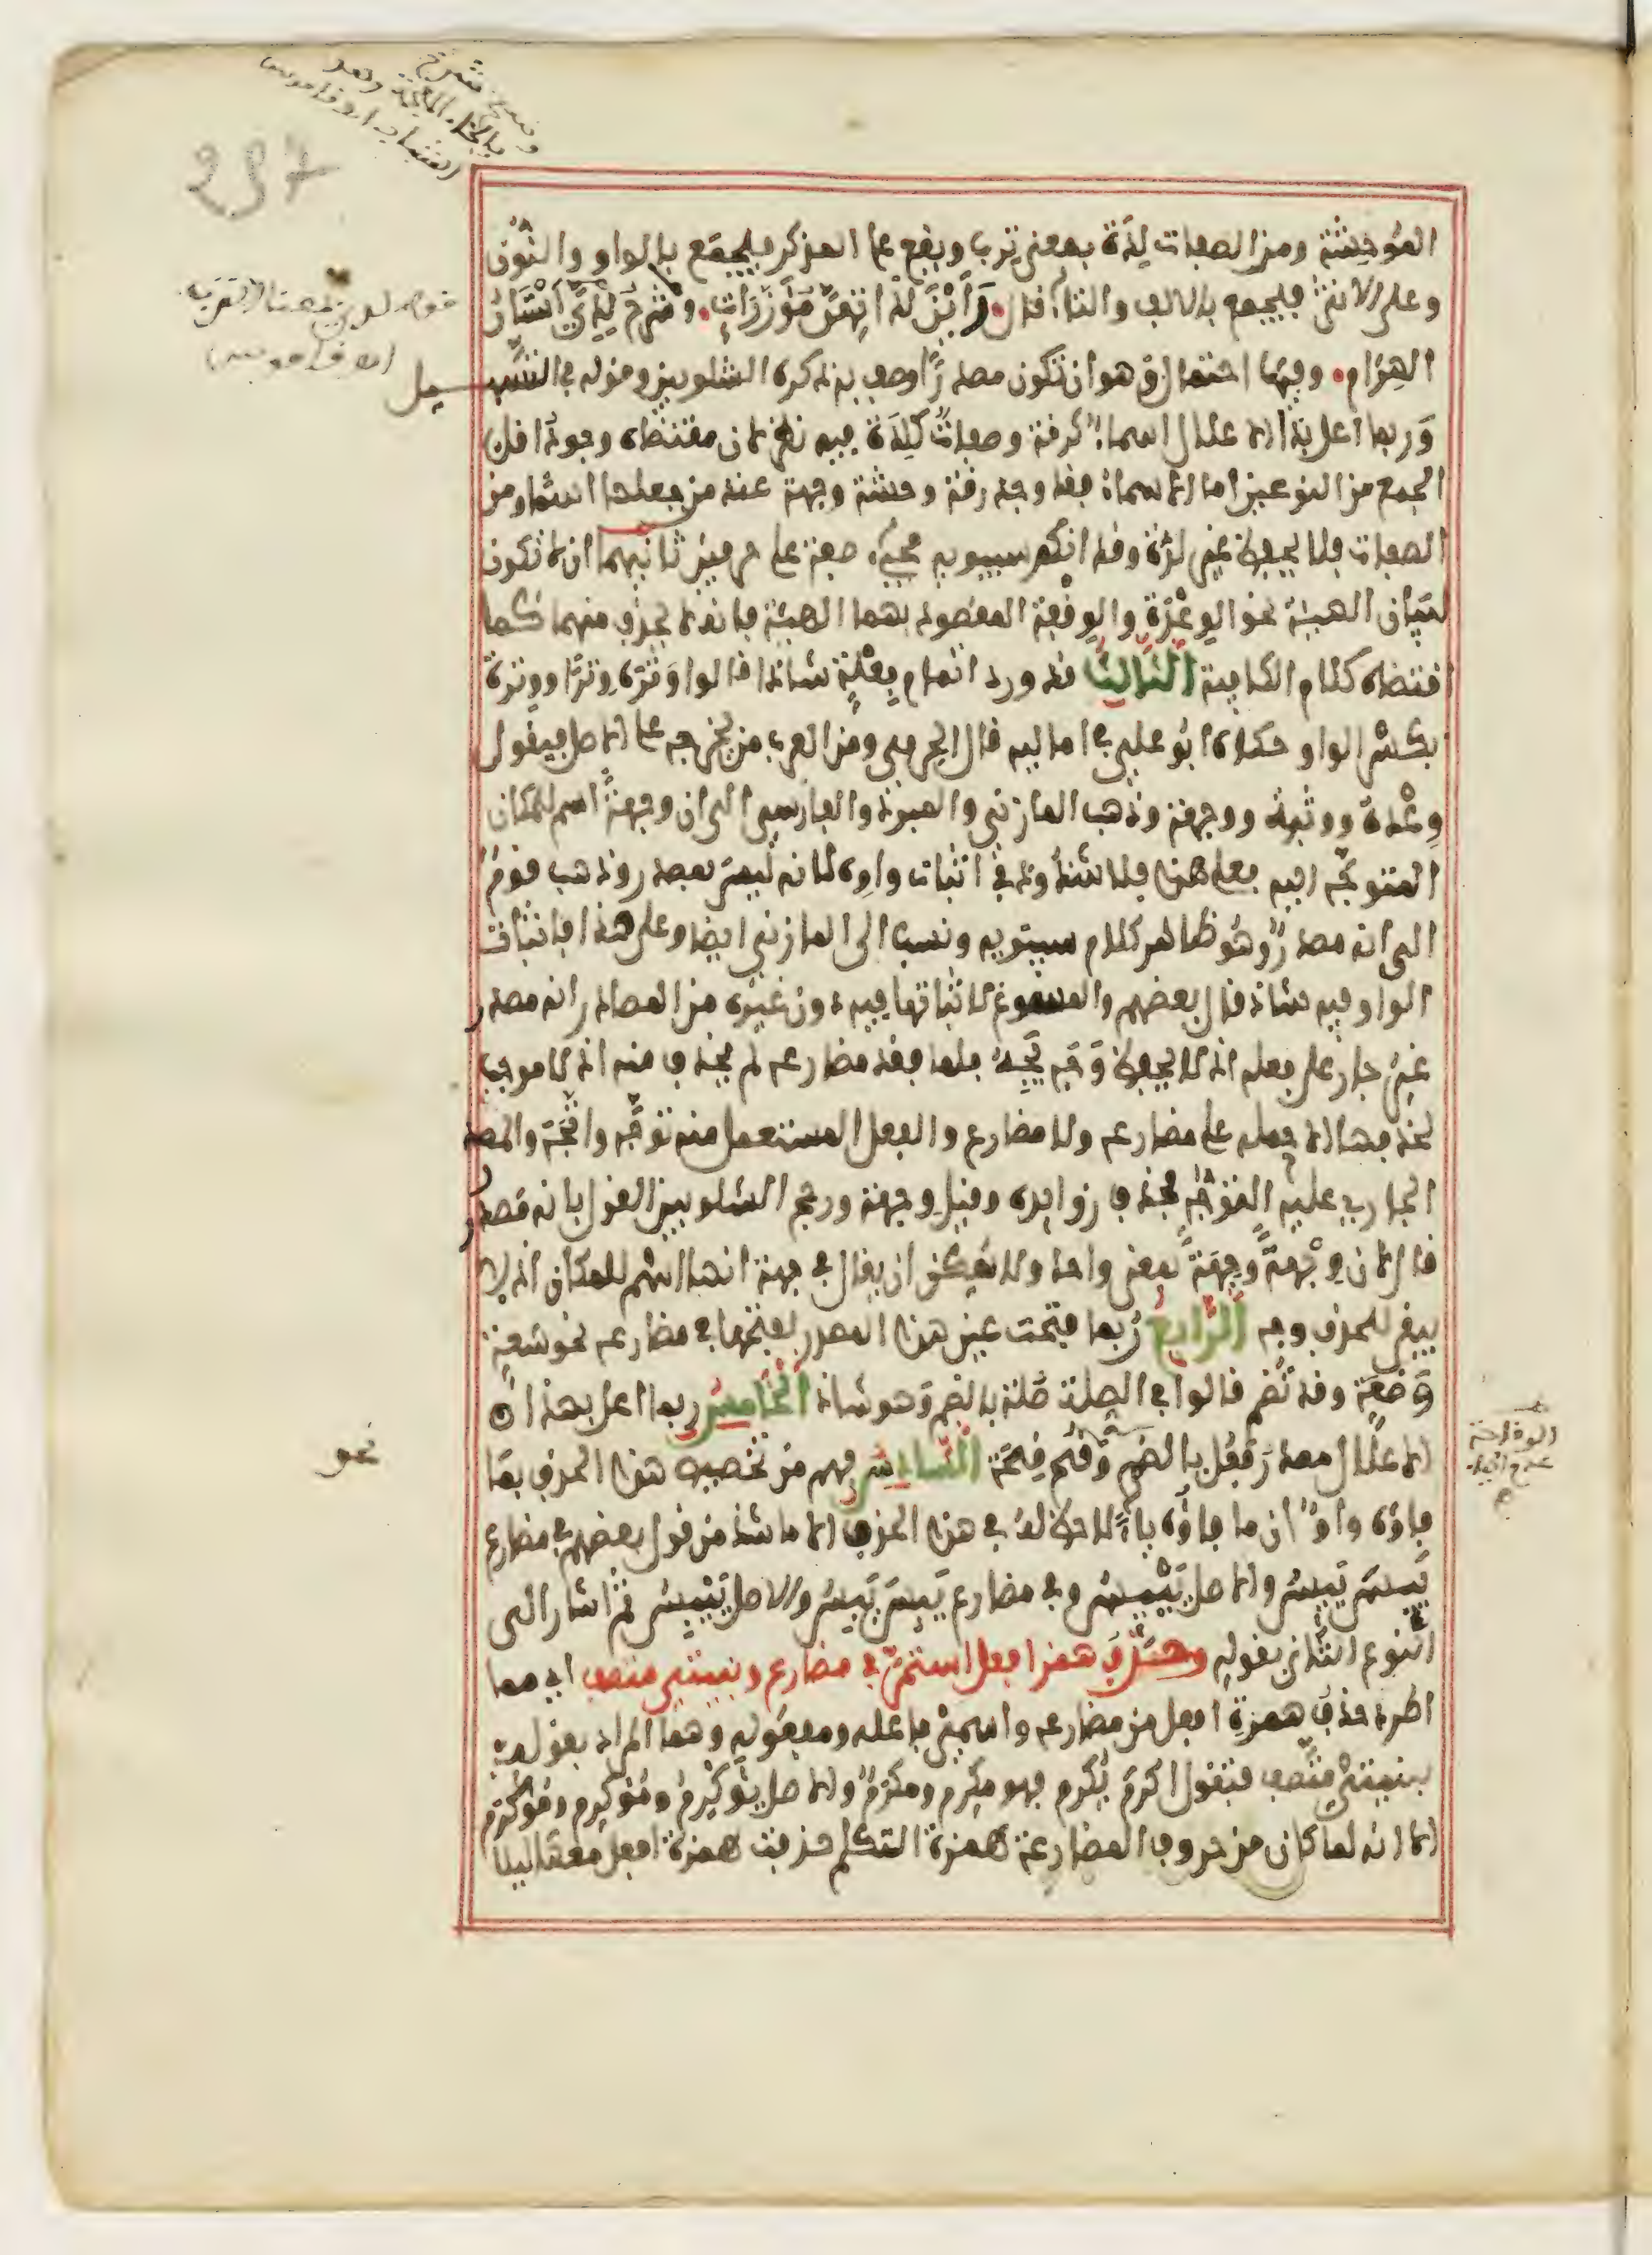 الموحشة ومن الصفات لِدَة بمعنى تِرب ويقع على المذكر فيجمع بالواو والنون
وعلى الأنثى فيجمع بالالف والتاء قال رأين لداتهن مؤزرات وشرخ لدي أسنان
الهرام وفيها احتمال وهو ان تكون مصدرا وصف به ذكره الشلوبين وقوله في التسهيل
وربما اعل بذا الاعلال اسماء كرقة وصفات كلدة فيه نظر لان مقتضاه وجود اقل
الجمع من النوعين اما الاسماء فقد وجد رقة وحشة وجهة عند من جعلها اسما ومن
الصفات فلا يحفظ غير لدة وقد انكر سيبويه مجيء صفة على حرفين ثانيهما ان لا تكون
لبيان الهيئة نحو الوعدة والوقفة المقصود بهما الهيئة فانه لا يحذف منهما كما
اقتضاه كلام الكافية الثالث قد ورد اتمام فعلة شاذا قالوا وتره وترا ووترة
بكسر الواو حكاه ابو علي في اماليه قال الجرمي ومن العرب من يخرجه على الاصل فيقول
وعدة ووثبة ووجهة وذهب المازني والمبرد والفارسي الى ان وجهة اسم للمكان
المتوجه اليه فعلى هذا فلا شذوذ في اثبات واوه لانه ليس بمصدر وذهب قوم
الى انه مصدر وهو ظاهر كلام سيبويه ونسب الى المازني ايضا وعلى هذا فاثبات
الواو فيه شاذ قال بعضهم والمسوغ لاثباتها فيه دون غيره من المصادر انه مصدر
غير جار على فعله اذ لا يحفظ وجه يجه فلما فقد مضارعه لم يحذف منه اذ لا موجب
لحذفها الا حمله على مضارعه ولا مضارع والفعل المستعمل منه توجه واتجه والمصدر
الجاري عليه التوجه فحذف زوايده وقيل وجهة ورجح الشلوبين القول بانه مصدر
قال لان وجهة وجهة بمعنى واحد ولا يمكن ان يقال في جهة انها اسم للمكان اذ لا
يبقى للحذف وجه الرابع ربما فتحت عين هذا المصدر لفتحها في مضارعه نحو سعة
وضعة وقد تضم قالوا في الصلة صلة بالضم وهو شاذ الخامس ربما اعل بهذا
الاعلال مصدر فعل بالضم وقح قحة السادس فهم من تخصيص هذا الحذف بما
فاؤه واو ان ما فاؤه ياء لا حظ له في هذا الحذف الا ما شذ من قول بعضهم في مضارع
يسر يسر والاصل ييسر وفي مضارع يبس يبس والاصل ييبس ثم اشار الى
النوع الثاني بقوله وحذف همز افعل استمر في مضارع وبنيتي متصف اي مما
اطرد حذف همزة افعل من مضارعه واسمي فاعله ومفعوله وهما المراد بقوله
بنيتي متصف فتقول اكرم يكرم فهو مكرم ومكرم والاصل يؤكرم ومؤكرم ومؤكرم
الا انه لما كان من حروف المضارعة همزة التكلم حذفت همزة افعل معها ليلا
نحو